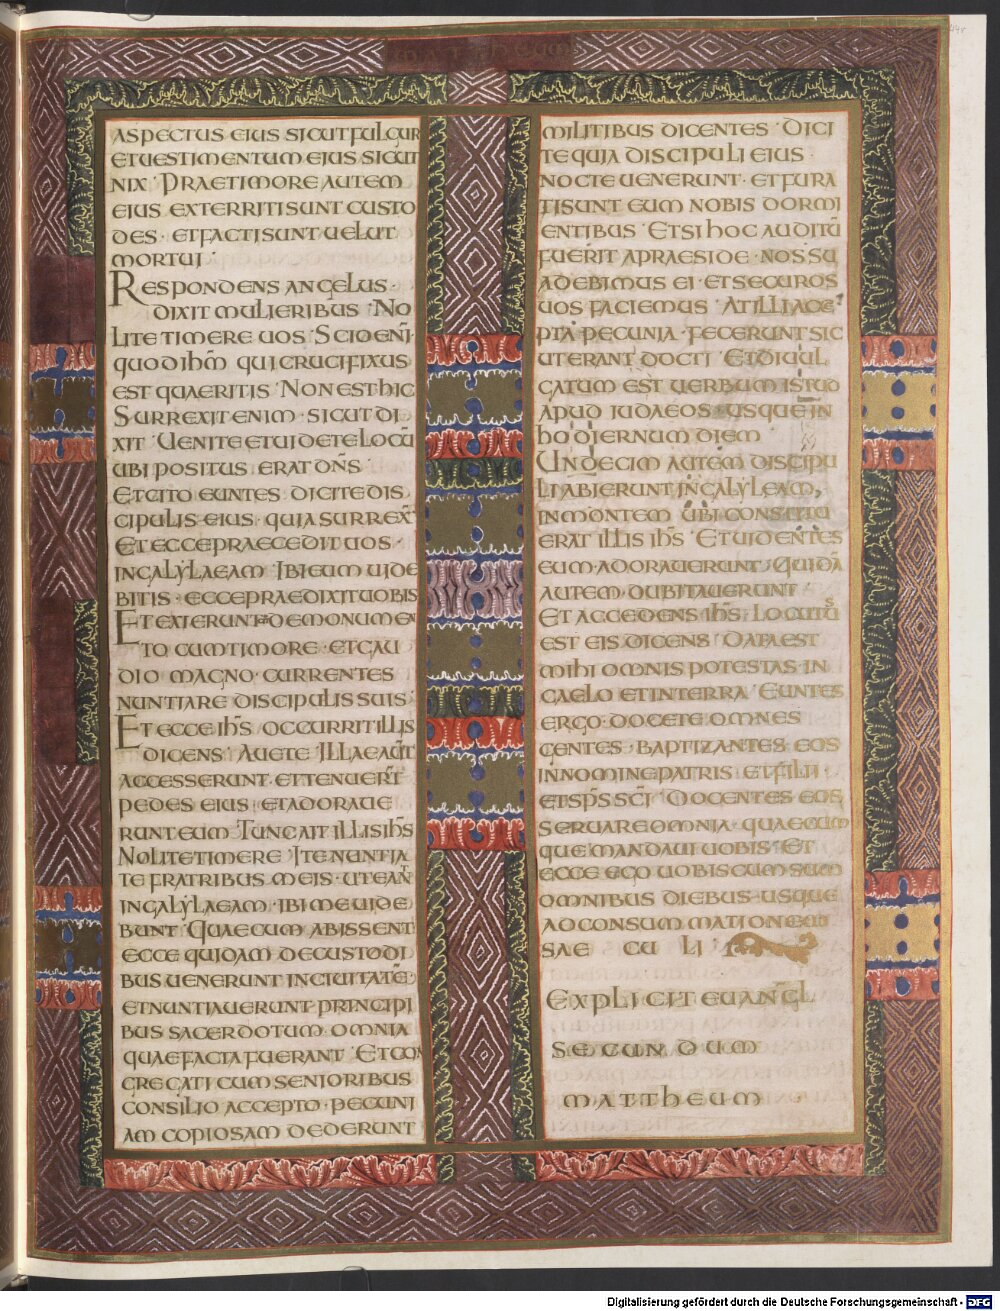 MATTHEUM
ASPECTUS EIUS SICUT FULGUR
ET UESTIMENTUM EIUS SICUT
NIX · PRAE TIMORE AUTEM
EIUS EXTERRITI SUNT CUSTO
DES · ET FACTI SUNT UELUT
MORTUI ·
RESPONDENS ANGELUS ·
DIXIT MULIERIBUS · NO
LITE TIMERE UOS · SCIO ENĪ
QUOD IHM̄ QUI CRUCIFIXUS
EST QUAERITIS · NON EST HIC
SURREXIT ENIM · SICUT DI
XIT · UENITE ET UIDETE LOCŪ
UBI POSITUS ERAT DN̄S
ET CITO EUNTES DICITE DIS
CIPULIS EIUS · QUIA SURREX̄
ET ECCE PRAECEDIT UOS ·
IN GALYLAEAM · IBI EUM UIDE
BITIS · ECCE PRAEDIXI UOBIS
ET EXIERUNT DE MONUMEN
TO CUM TIMORE · ET GAU
DIO MAGNO · CURRENTES
NUNTIARE DISCIPULIS SUIS ·
ET ECCE IHS̄ OCCURRIT ILLIS
DICENS · AUETE · ILLAE AUT̄
ACCESSERUNT · ET TENUER̄T
PEDES EIUS · ET ADORAUE
RUNT EUM · TUNC AIT ILLIS IHS̄
NOLITE TIMERE · ITE NUNTIA
TE FRATRIBUS MEIS · UT EAN̄
IN GALYLAEAM · IBI ME UIDE
BUNT · QUAE CUM ABISSENT
ECCE QUIDAM DE CUSTODI
BUS UENERUNT IN CIUITATĒ ·
ET NUNTIAUERUNT PRINCIPI
BUS SACERDOTUM · OMNIA
QUAE FACTA FUERANT · ET CON
GREGATI CUM SENIORIBUS
CONSILIO ACCEPTO · PECUNI
AM COPIOSAM DEDERUNT
MILITIBUS DICENTES · DICI
TE QUIA DISCIPULI EIUS
NOCTE UENERUNT · ET FURA
TI SUNT EUM NOBIS DORMI
ENTIBUS · ET SI HOC AUDITŪ
FUERIT A PRAESIDE · NOS SU
ADEBIMUS EI · ET SECUROS
UOS FACIEMUS · AT ILLI ACCE
PTA PECUNIA · FECERUNT SIC
UT ERANT DOCTI · ET DIUUL
GATUM EST UERBUM ISTUD
APUD IUDAEOS · USQUE IN
HODIERNUM DIEM ·
UNDECIM AUTEM DISCIPU
LI ABIERUNT IN GALYLEAM,
IN MONTEM UBI CONSTITU
ERAT ILLIS IHS̄ · ET UIDENTES
EUM · ADORAUERUNT · QUIDĀ
AUTEM DUBITAUERUNT ·
ET ACCEDENS IHS̄ · LOCUTUS
EST EIS DICENS · DATA EST
MIHI OMNIS POTESTAS · IN
CAELO ET IN TERRA · EUNTES
ERGO · DOCETE OMNES
GENTES · BAPTIZANTES EOS
IN NOMINE PATRIS · ET FILII ·
ET SPS̄ SCĪ · DOCENTES EOS
SERUARE OMNIA · QUAECUM
QUE MANDAUI UOBIS · ET
ECCE EGO UOBISCUM SUM
OMNIBUS DIEBUS · USQUE
AD CONSUMMATIONEM
SAE CU LI ·
EXPLICIT EUANGL̄
SECUNDUM
MATTHEUM
Digitalisierung gefördert durch die Deutsche Forschungsgemeinschaft - DFG